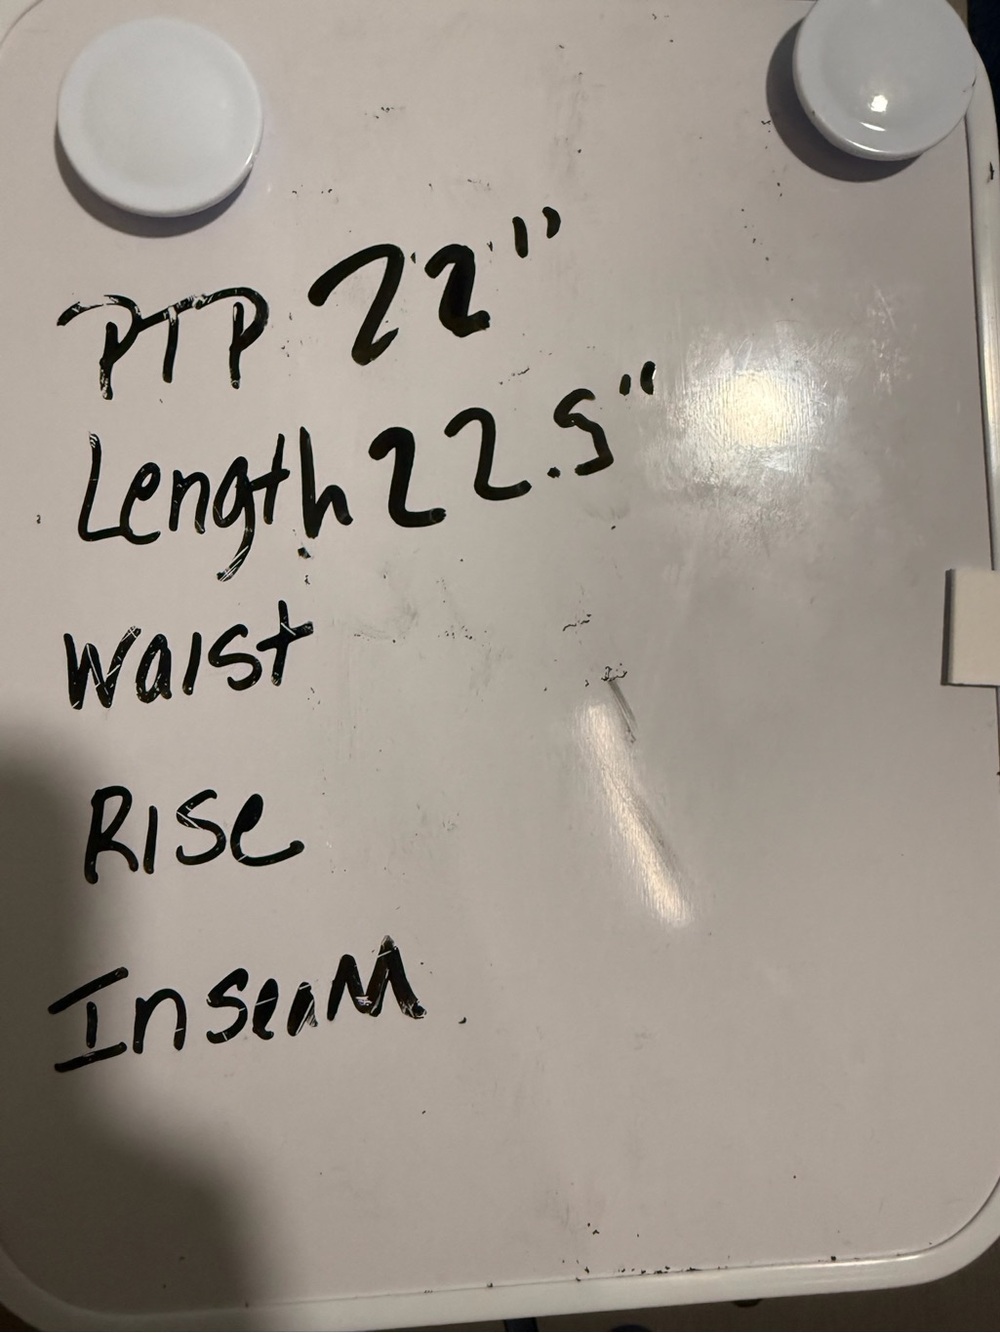 PTP 22"
Length 22.5"
Waist
Rise
Inseam